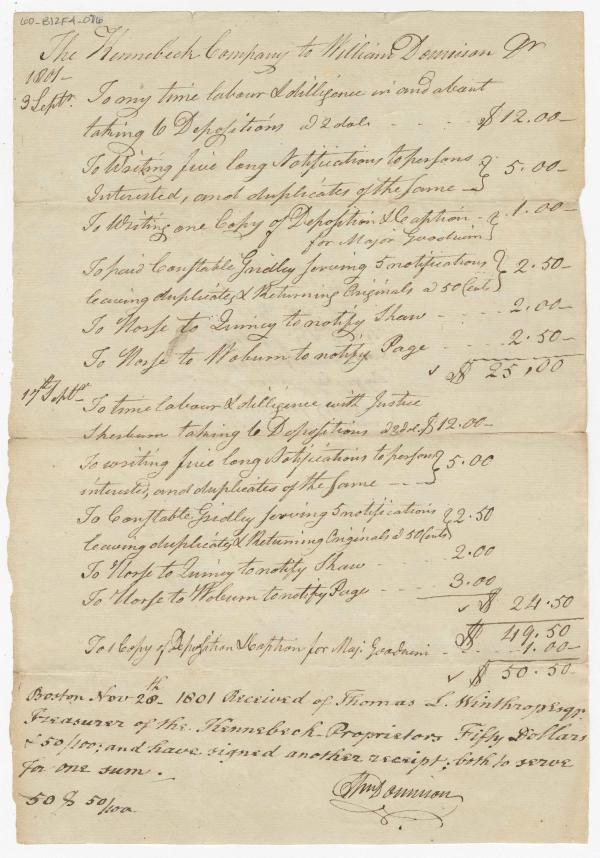 60-B12F4-016
The Kennebeck Company to William Donnison Dr
1801-
3 Septr. To my time labour & dilligence in and about
taking 6 Depositions a 2 dol. - - - - $ 12.00-
To Writing five long Notifications to persons
Interested, and duplicates of the same - } 5.00-
To Writing one Copy of Deposition & Caption - } 1.00-
for Major Goodwin
To paid Constable Gridley serving 5 notifications
leaving duplicates & Returning Originals a 50 Cents } 2.50-
To Horse to Quincy to notify Shaw - - - - 2.00-
To Horse to Woburn to notify Page - - - 2.50-
$ 25,00
17th Septr- To time labour & dilligence with Justice
Sherburn taking 6 Depositions a 2 dol. $ 12.00-
To writing five long Notifications to persons
interested, and duplicates of the same - - - } 5.00
To Constable Gridley serving 5 notifications
leaving duplicates & Returning Originals a 50 Cents } 2.50
To Horse to Quincy to notify Shaw - - - - 2.00
To Horse to Woburn to notify Page - - - 3.00
$ 24.50
$ 49.50
To 1 Copy of Deposition & Caption for Maj. Goodwin - - - 1.00-
$ 50.50-
Boston Nov 28th - 1801 Received of Thomas L. Winthrop Esqr.
Treasurer of the Kennebeck-Proprietors Fifty Dollars
& 50/100; and have signed another receipt; both to serve
for one sum.
50 $ 50/100 Wm Donnison